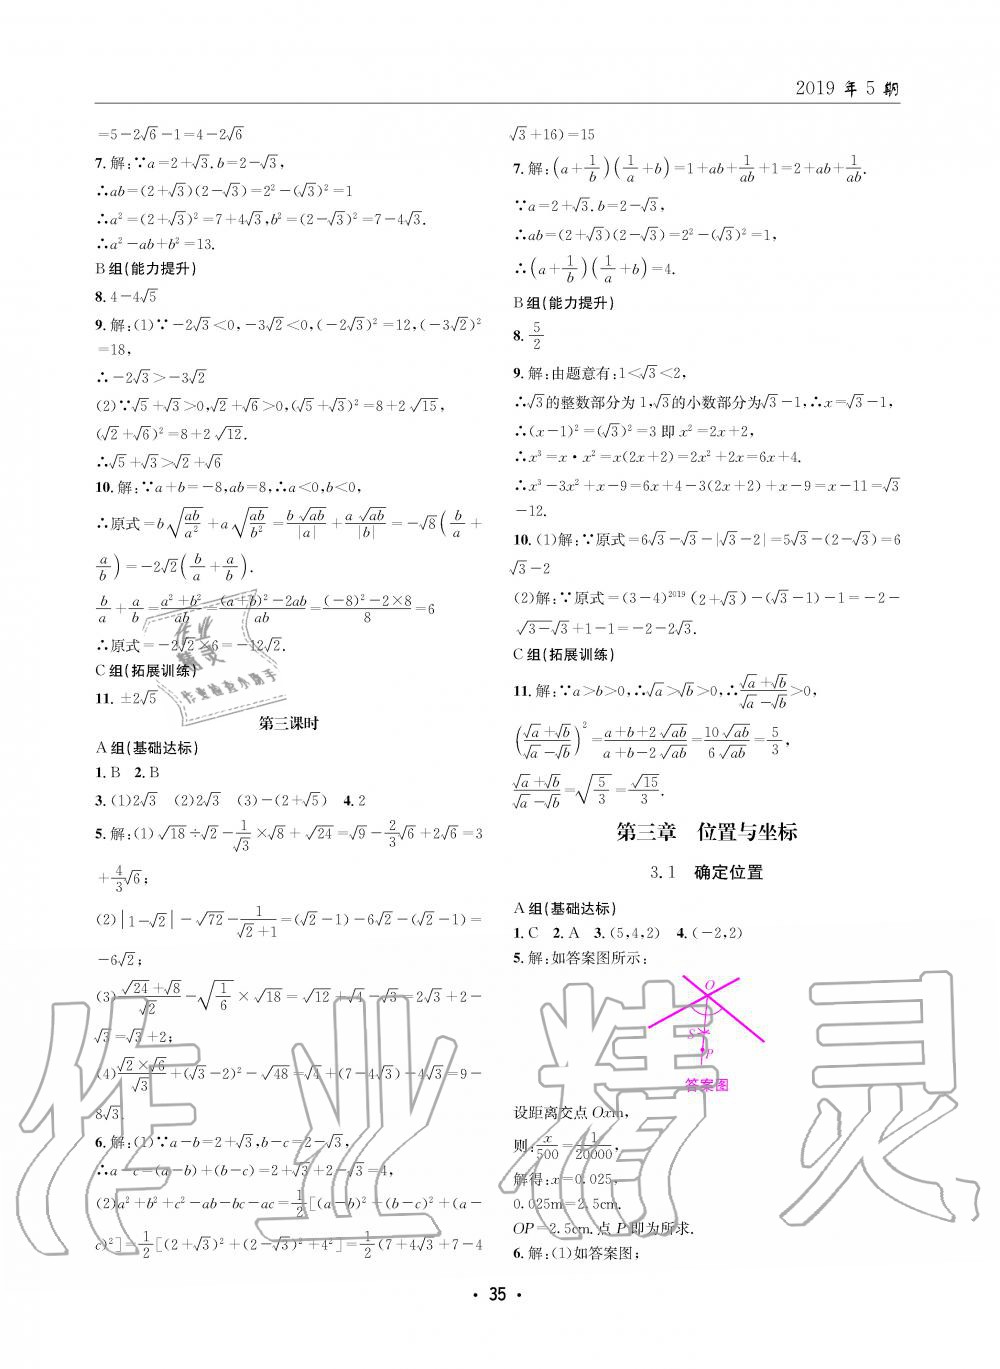 2019 年 5 期
=5-2√6-1=4-2√6
7. 解:∵a=2+√3.b=2-√3,
∴ab=(2+√3)(2-√3)=2²-(√3)²=1
∴a²=(2+√3)²=7+4√3,b²=(2-√3)²=7-4√3.
∴a²-ab+b²=13.
B 组(能力提升)
8. 4-4√5
9. 解:(1)∵-2√3<0,-3√2<0,(-2√3)²=12,(-3√2)²
=18,
∴-2√3>-3√2
(2)∵√5+√3>0,√2+√6>0,(√5+√3)²=8+2√15,
(√2+√6)²=8+2√12.
∴√5+√3>√2+√6
10. 解:∵a+b=-8,ab=8,∴a<0,b<0,
∴原式=b√(ab/a²)+a√(ab/b²)=b√ab/|a|+a√ab/|b|=-√8(b/a+
a/b)=-2√2(b/a+a/b).
b/a+a/b=(a²+b²)/ab=((a+b)²-2ab)/ab=((-8)²-2×8)/8=6
∴原式=-2√2×6=-12√2.
C 组(拓展训练)
11. ±2√5
第三课时
A 组(基础达标)
1. B 2. B
3. (1)2√3 (2)2√3 (3)-(2+√5) 4. 2
5. 解:(1)√18÷√2-1/√3×√8+√24=√9-2/3√6+2√6=3
+4/3√6;
(2)|1-√2|-√72-1/(√2+1)=(√2-1)-6√2-(√2-1)=
-6√2;
(3)(√24+√8)/√2-√(1/6)×√18=√12+√4-√3=2√3+2-
√3=√3+2;
(4)(√2×√6)/√3+(√3-2)²-√48=√4+(7-4√3)-4√3=9-
8√3.
6. 解:(1)∵a-b=2+√3,b-c=2-√3,
∴a-c=(a-b)+(b-c)=2+√3+2-√3=4,
(2)a²+b²+c²-ab-bc-ac=1/2[(a-b)²+(b-c)²+(a-
c)²]=1/2[(2+√3)²+(2-√3)²+4²]=1/2(7+4√3+7-4
√3+16)=15
7. 解:(a+1/b)(1/a+b)=1+ab+1/ab+1=2+ab+1/ab.
∵a=2+√3.b=2-√3,
∴ab=(2+√3)(2-√3)=2²-(√3)²=1,
∴(a+1/b)(1/a+b)=4.
B 组(能力提升)
8. 5/2
9. 解:由题意有:1<√3<2,
∴√3的整数部分为 1,√3的小数部分为√3-1,∴x=√3-1,
∴(x-1)²=(√3)²=3 即 x²=2x+2,
∴x³=x·x²=x(2x+2)=2x²+2x=6x+4.
∴x³-3x²+x-9=6x+4-3(2x+2)+x-9=x-11=√3
-12.
10. (1)解:∵原式=6√3-√3-|√3-2|=5√3-(2-√3)=6
√3-2
(2)解:∵原式=(3-4)²⁰¹⁹(2+√3)-(√3-1)-1=-2-
√3-√3+1-1=-2-2√3.
C 组(拓展训练)
11. 解:∵a>b>0,∴√a>√b>0,∴(√a+√b)/(√a-√b)>0,
((√a+√b)/(√a-√b))²=(a+b+2√ab)/(a+b-2√ab)=10√ab/6√ab=5/3,
(√a+√b)/(√a-√b)=√(5/3)=√15/3.
第三章 位置与坐标
3.1 确定位置
A 组(基础达标)
1. C 2. A 3. (5,4,2) 4. (-2,2)
5. 解:如答案图所示:
O
S
P
答案图
设距离交点 Oxm,
则:x/500=1/20000.
解得:x=0.025,
0.025m=2.5cm.
OP=2.5cm.点 P 即为所求.
6. 解:(1)如答案图;
· 35 ·
作业精灵
作业
精灵
作业检查小助手